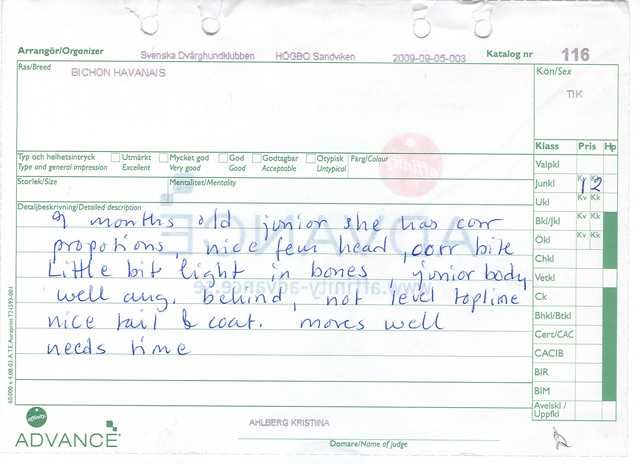 Arrangör/Organizer Svenska Dvärghundklubben HÖGBO Sandviken 2009-09-05-003 Katalog nr 116
Ras/Breed
BICHON HAVANAIS
Kön/Sex
TIK
Klass Pris Hp
Valpkl
Junkl Kv Kk 1 2
Ukl Kv Kk
Bkl/Jkl Kv Kk
Ökl Kv Kk
Chkl
Vetkl
Ck
Bhkl/Btkl
Cert/CAC
CACIB
BIR
BIM
Avelskl / Uppfkl
Typ och helhetsintryck Utmärkt Mycket god God Godtagbar Otypisk Färg/Colour
Type and general impression Excellent Very good Good Acceptable Untypical
Storlek/Size Mentalitet/Mentality
Detaljbeskrivning/Detailed description
9 months old junior she has corr
propotions, nice fem head, corr bite
Little bit light in bones, junior body
well ang. behind, not level topline
nice tail & coat. moves well
needs time
affinity
ADVANCE
www.affinity-advance.se
affinity
ADVANCE
AHLBERG KRISTIINA
Domare/Name of judge